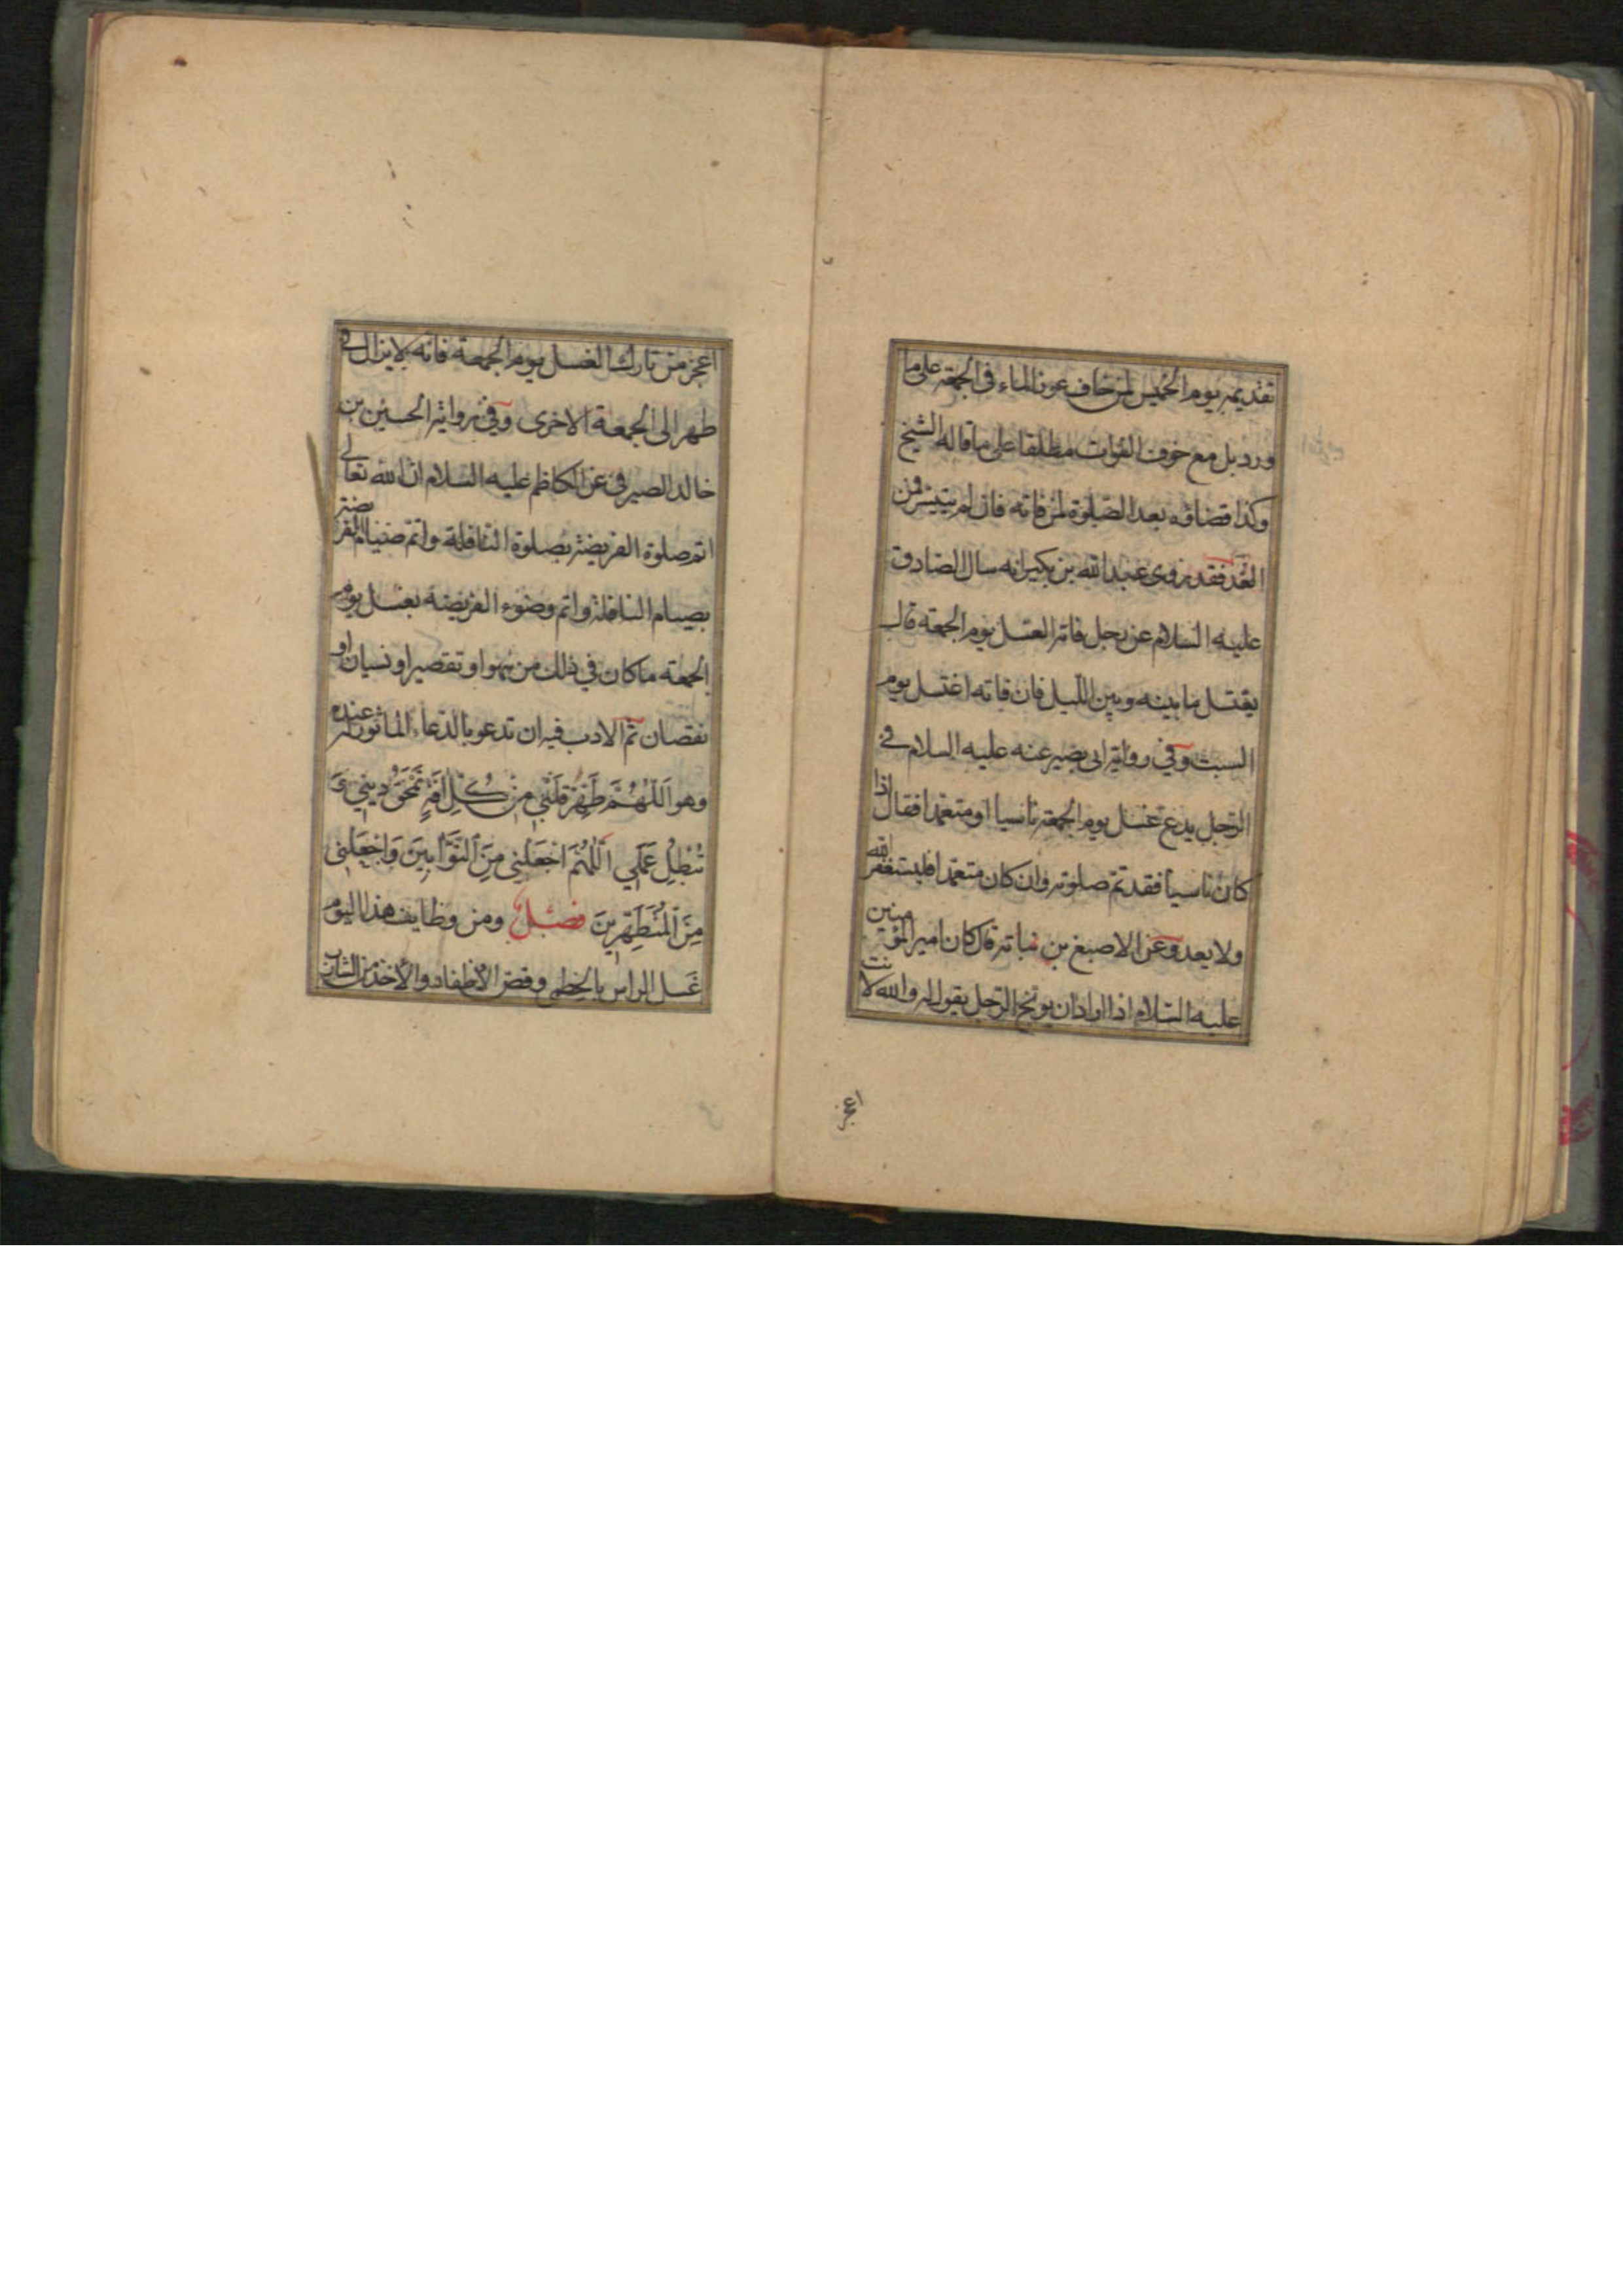 تقديمه يوم الخميس لمن خاف عوز الماء فى الجمعة على ما
ورد بل مع خوف الفوات مطلقا على ما قاله الشيخ
وكذا قضاؤه بعد الصلوة لمن فاته فان لم يتيسر فمن
الغد فقد روى عبد الله بن بكير انه سال الصادق
عليه السلام عن رجل فاته الغسل يوم الجمعة قال
يغتسل ما بينه وبين الليل فان فاته اغتسل يوم
السبت وفي رواية ابى بصير عنه عليه السلام في
الرجل يدع غسل يوم الجمعة ناسيا او متعمدا فقال اذا
كان ناسيا فقد تم صلوته وان كان متعمدا فليستغفر الله
ولا يعد وعن الاصبغ بن نباتة قال كان امير المؤمنين
عليه السلام اذا اراد ان يوبخ الرجل يقول له والله لانت
اعجز
اعجز من تارك الغسل يوم الجمعة فانه لا يزال في
طهر الى الجمعة الاخرى وفي رواية الحسين بن
خالد الصيرفى عن الكاظم عليه السلام ان الله تعالى
اتم صلوة الفريضة بصلوة النافلة واتم صيام الفريضة
بصيام النافلة واتم وضوء الفريضة بغسل يوم
الجمعة ما كان في ذلك من سهو او تقصير او نسيان او
نقصان ثم الادب فيه ان تدعو بالدعاء الماثور عنده
وهو اَللّهُمَّ طَهِّرْ قَلْبِي مِنْ كُلِّ آفَةٍ تَمْحَقُ دِينِي وَ
تُبْطِلُ عَمَلِي اَللّهُمَّ اجْعَلْنِي مِنَ التَّوَّابِينَ وَاجْعَلْنِي
مِنَ الْمُتَطَهِّرِينَ فصل ومن وظايف هذا اليوم
غسل الراس بالخطمى وقص الاظفار والاخذ من الشارب